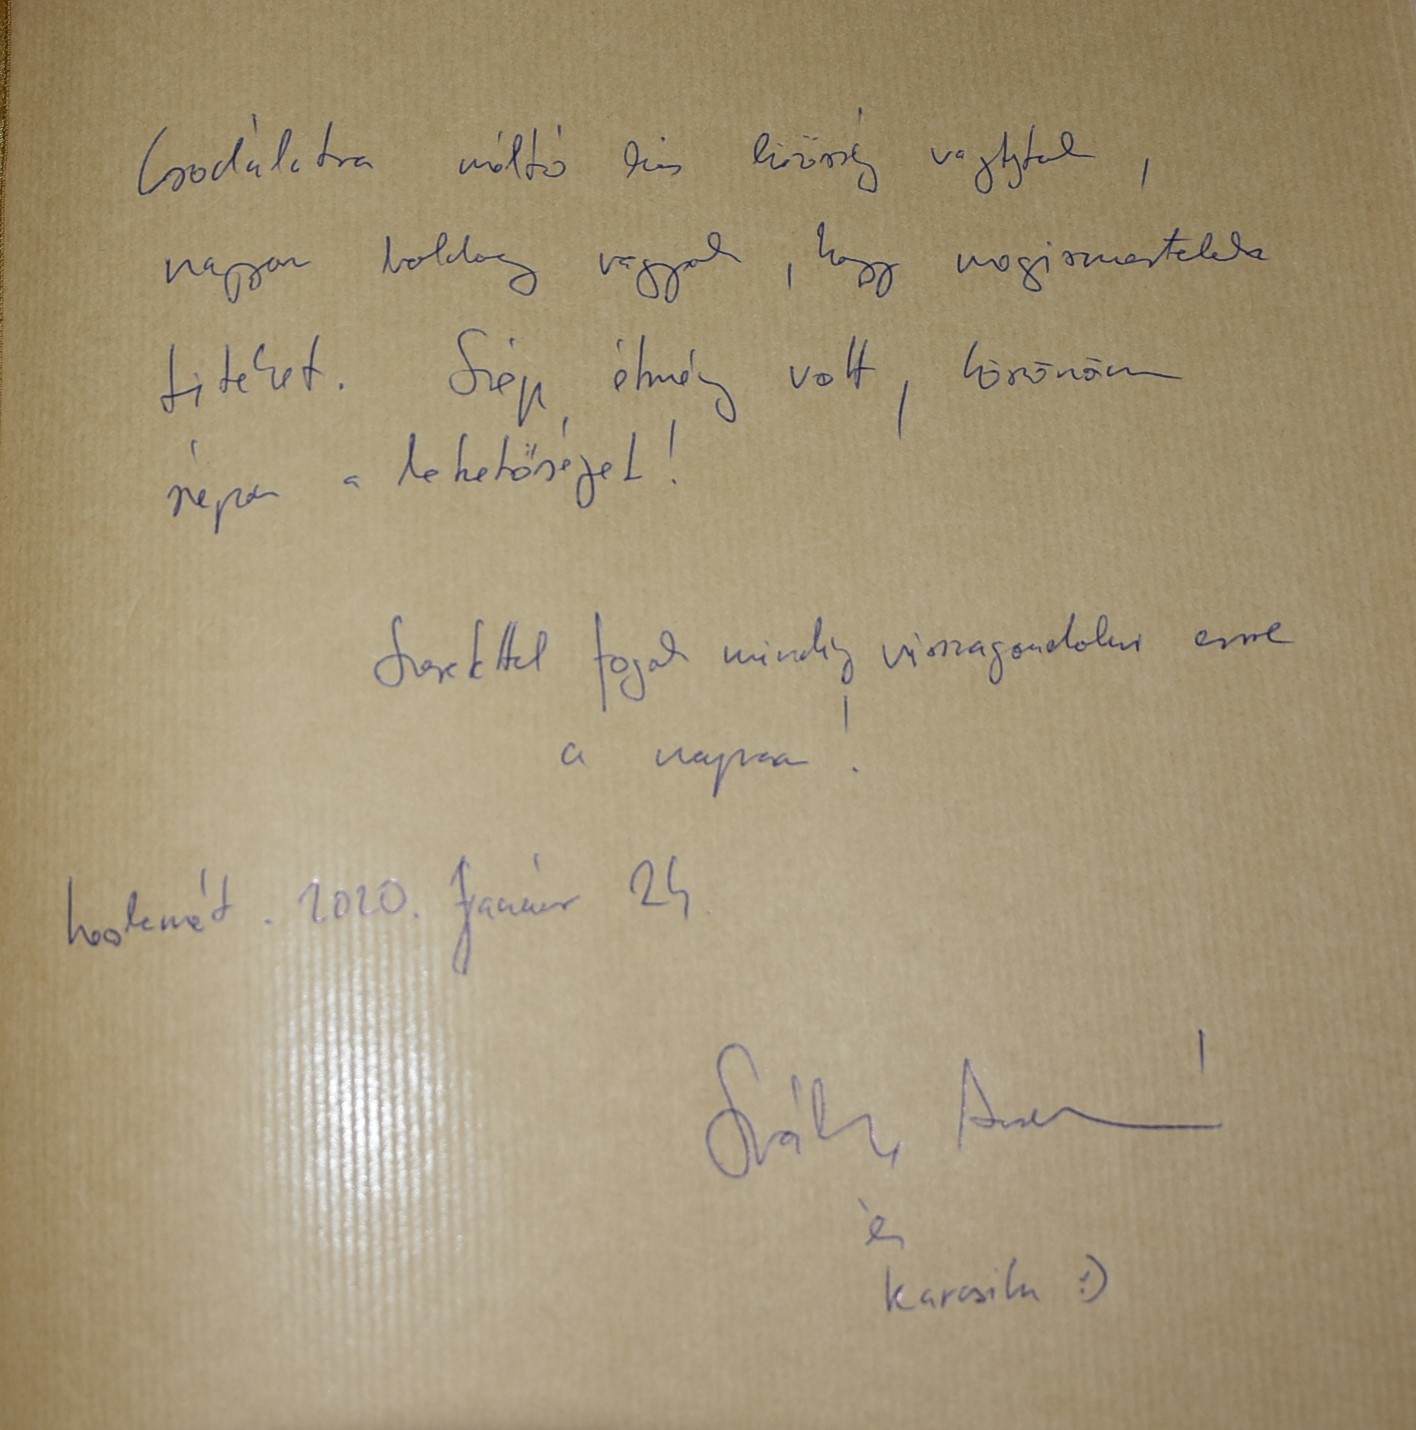 Csodálatra méltó kis közösség vagytok,
nagyon boldog vagyok, hogy megismertelek
titeket. Szép élmény volt, köszönöm
szépen a lehetőséget!
Szeretettel fogok mindig visszagondolni erre
a napra!
2020. Január 24.
és
Karcsika :)